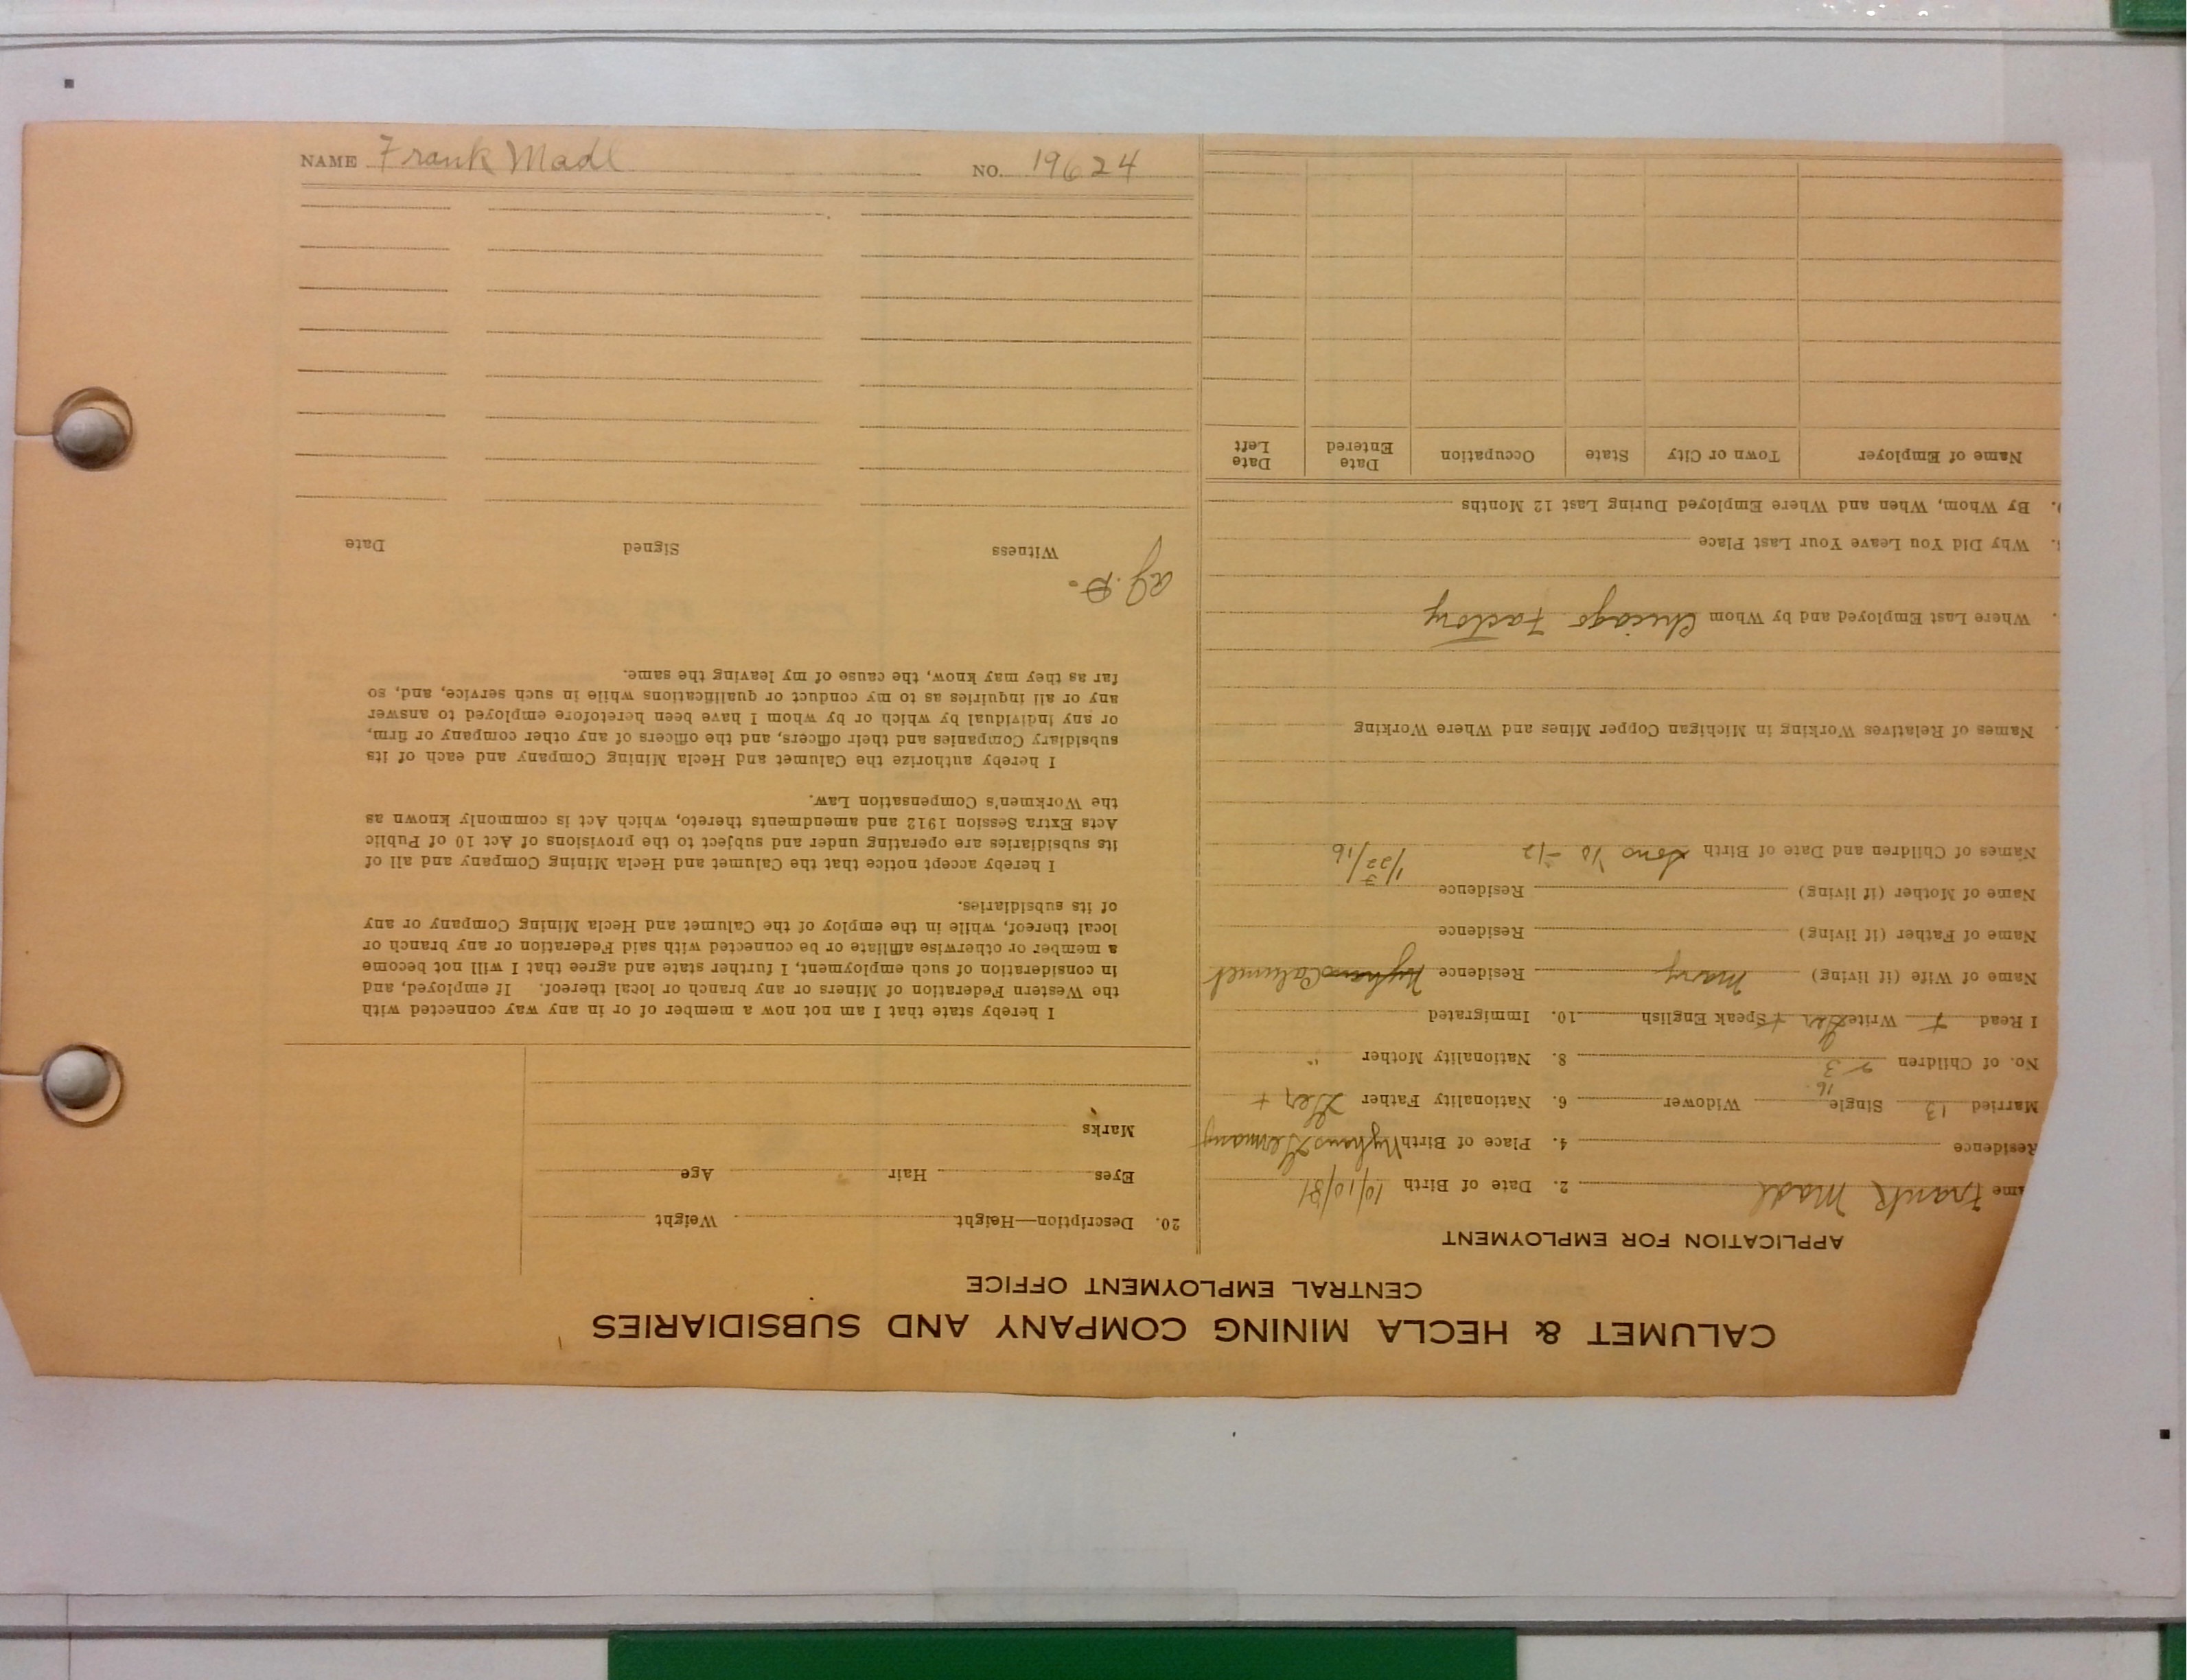 NAME Frank Madl NO. 19624
CALUMET & HECLA MINING COMPANY AND SUBSIDIARIES
CENTRAL EMPLOYMENT OFFICE
APPLICATION FOR EMPLOYMENT
ame Frank Madl 2. Date of Birth 10/10/81
Residence 4. Place of Birth Germany
Married 13 Single 16 Widower 6. Nationality Father Ger +
No. of Children 3 8. Nationality Mother "
I Read + Write Ger + Speak English 10. Immigrated
Name of Wife (if living) Mary Residence Calumet
Name of Father (if living) Residence
Name of Mother (if living) Residence
Names of Children and Date of Birth Sons 10 - 12
1/22/16
Names of Relatives Working in Michigan Copper Mines and Where Working
Where Last Employed and by Whom Chicago Factory
Why Did You Leave Your Last Place
By Whom, When and Where Employed During Last 12 Months
Name of Employer Town or City State Occupation Date Entered Date Left
20. Description—Height Weight
Eyes Hair Age
Marks
I hereby state that I am not now a member of or in any way connected with
the Western Federation of Miners or any branch or local thereof. If employed, and
in consideration of such employment, I further state and agree that I will not become
a member or otherwise affiliate or be connected with said Federation or any branch or
local thereof, while in the employ of the Calumet and Hecla Mining Company or any
of its subsidiaries.
I hereby accept notice that the Calumet and Hecla Mining Company and all of
its subsidiaries are operating under and subject to the provisions of Act 10 of Public
Acts Extra Session 1912 and amendments thereto, which Act is commonly known as
the Workmen's Compensation Law.
I hereby authorize the Calumet and Hecla Mining Company and each of its
subsidiary Companies and their officers, and the officers of any other company or firm,
or any individual by which or by whom I have been heretofore employed to answer
any or all inquiries as to my conduct or qualifications while in such service, and, so
far as they may know, the cause of my leaving the same.
Witness Signed Date